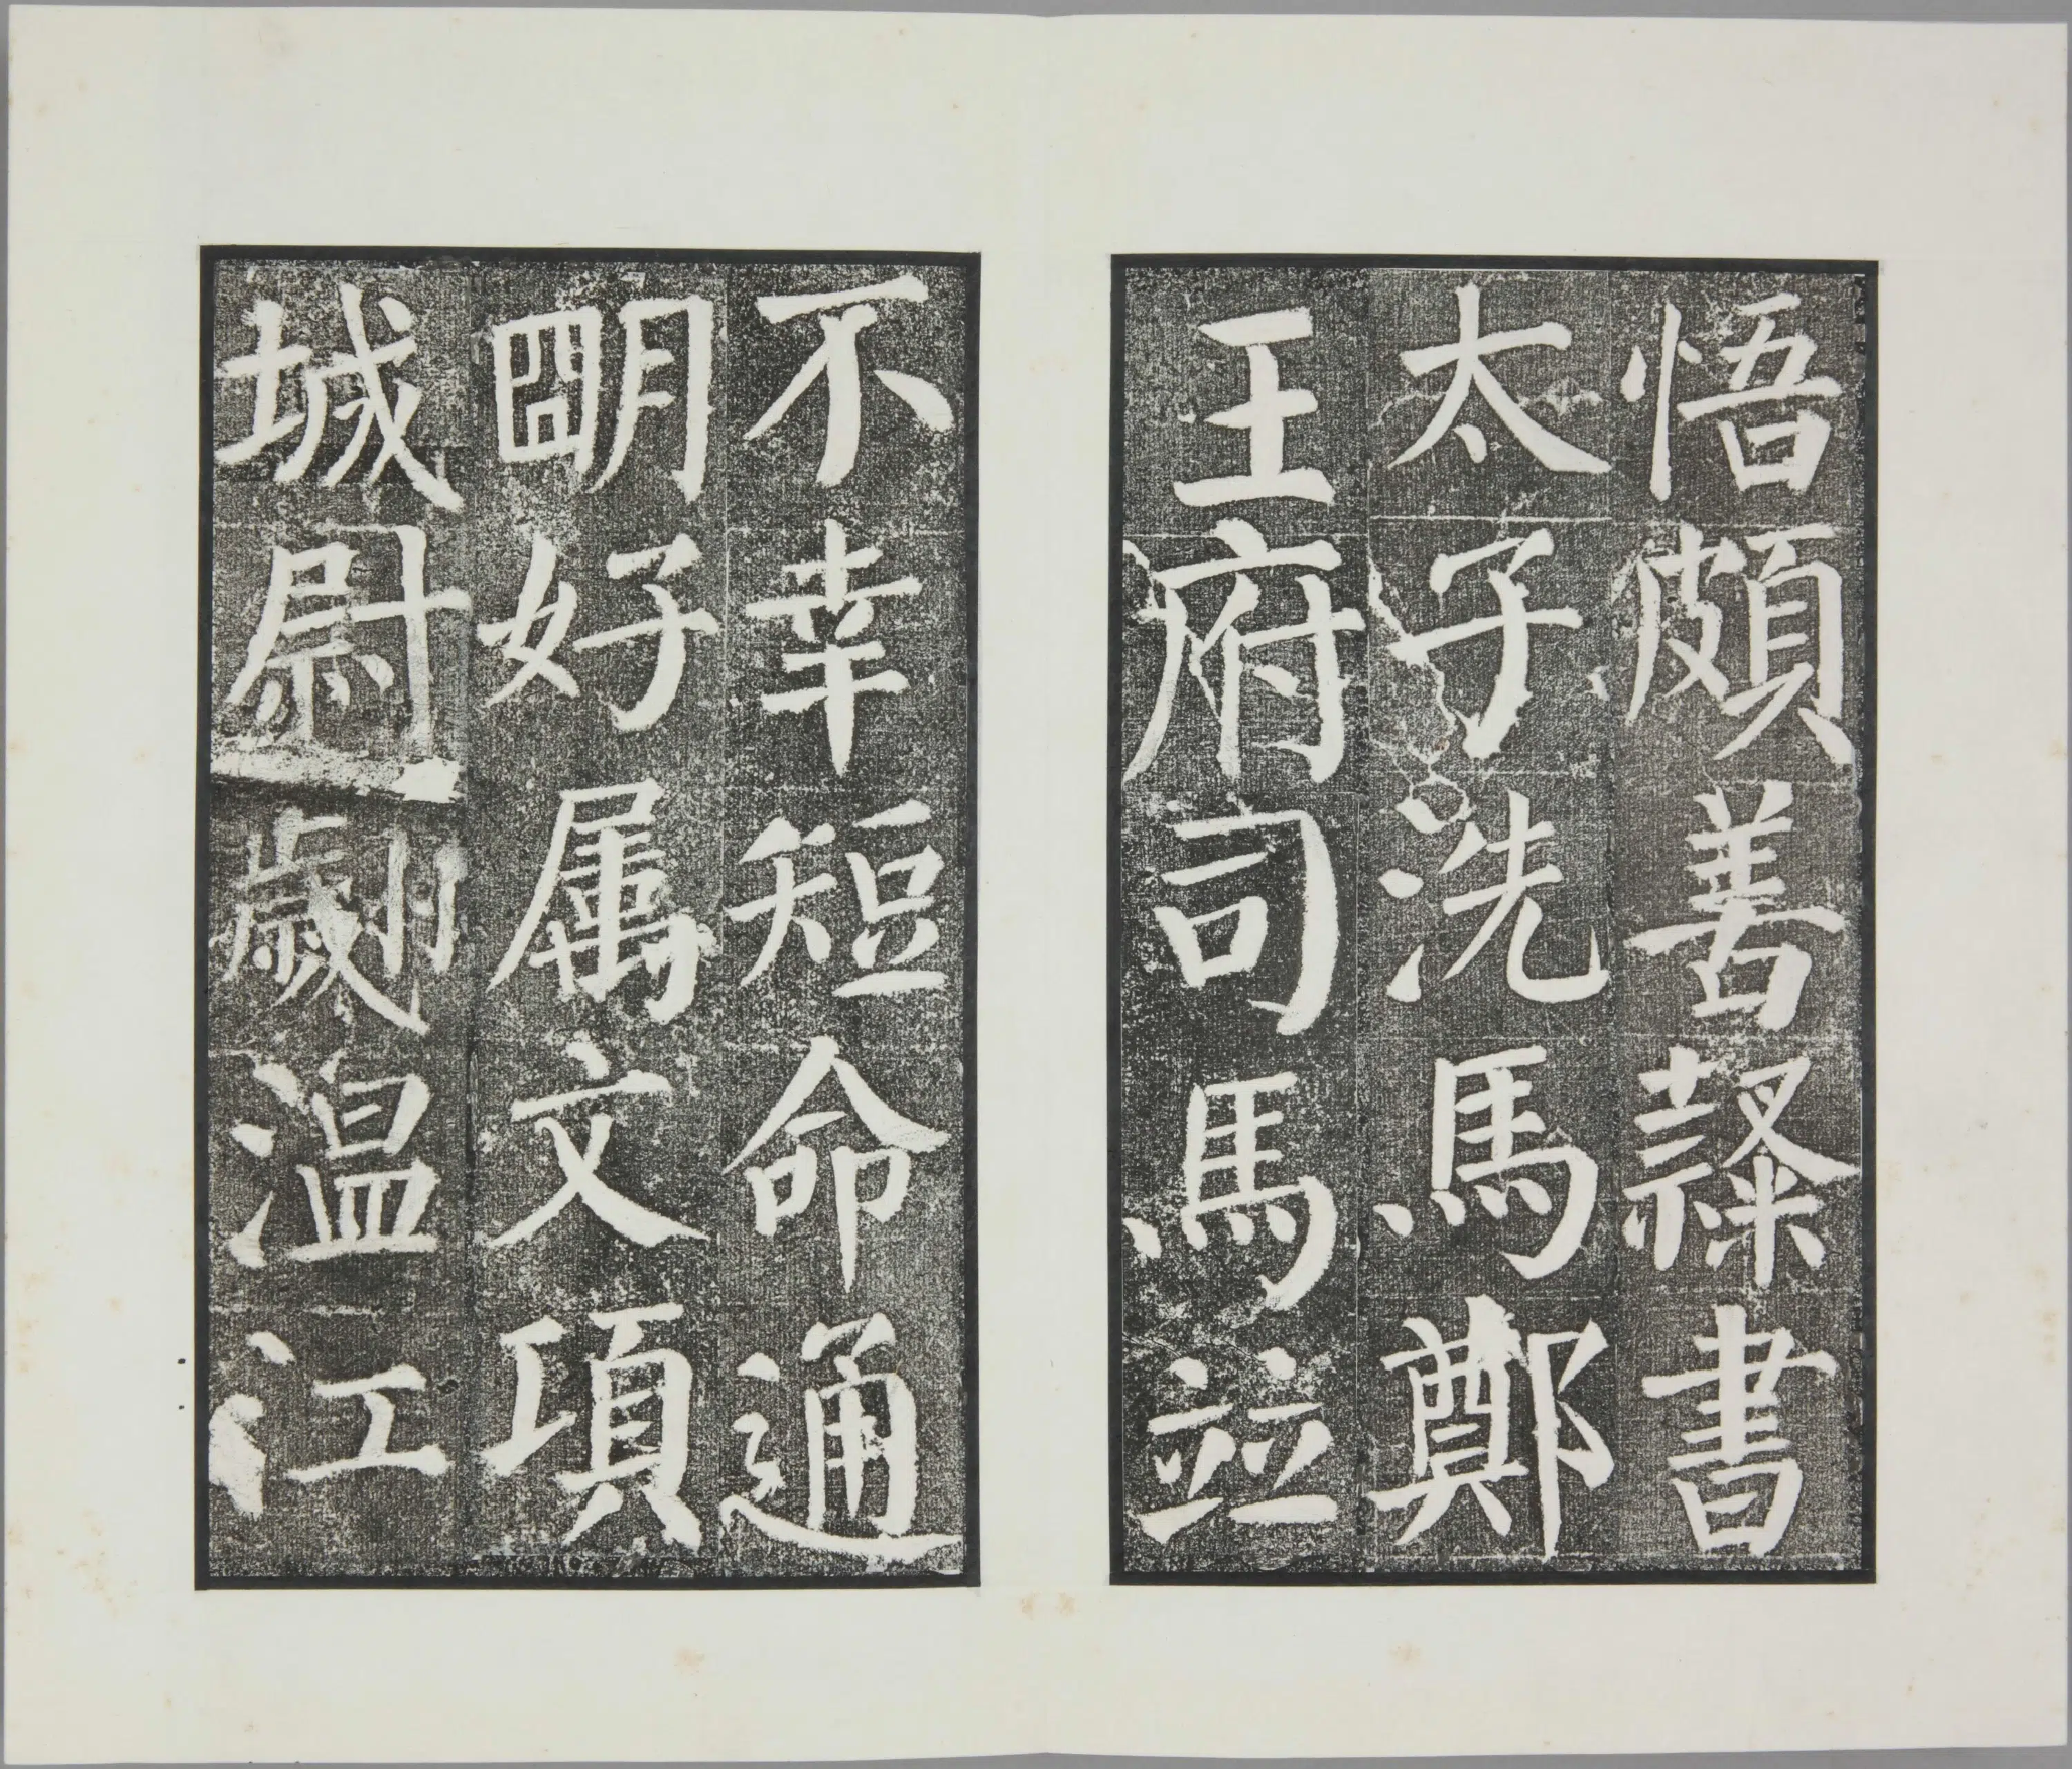 悟頗善隸書
太子洗馬鄭
王府司馬並
不幸短命通
明好属文項
城尉翽温
江